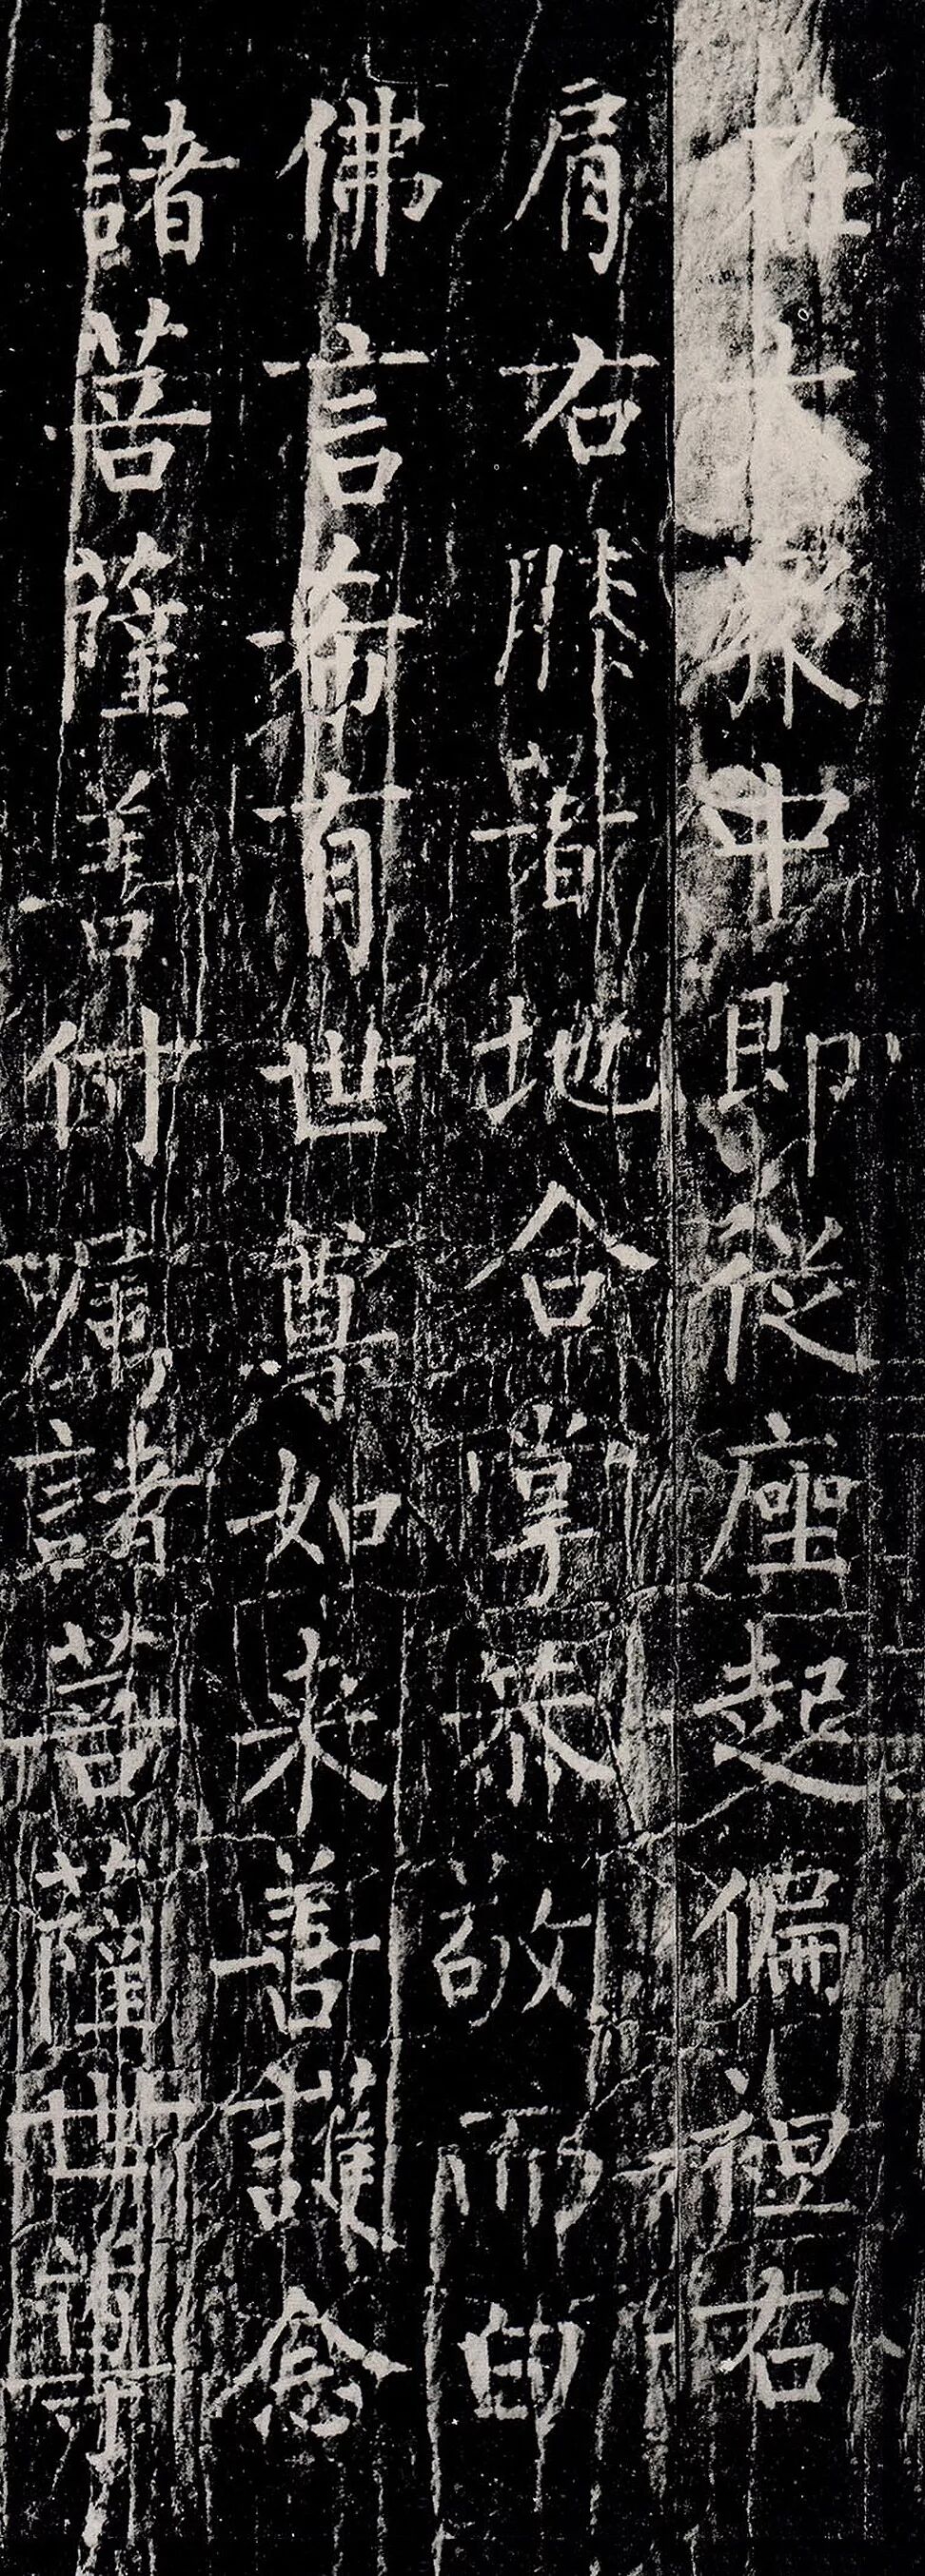 在大衆中即從座起偏袒右
肩右膝著地合掌恭敬而白
佛言希有世尊如来善護念
諸菩薩善付囑諸菩薩世尊